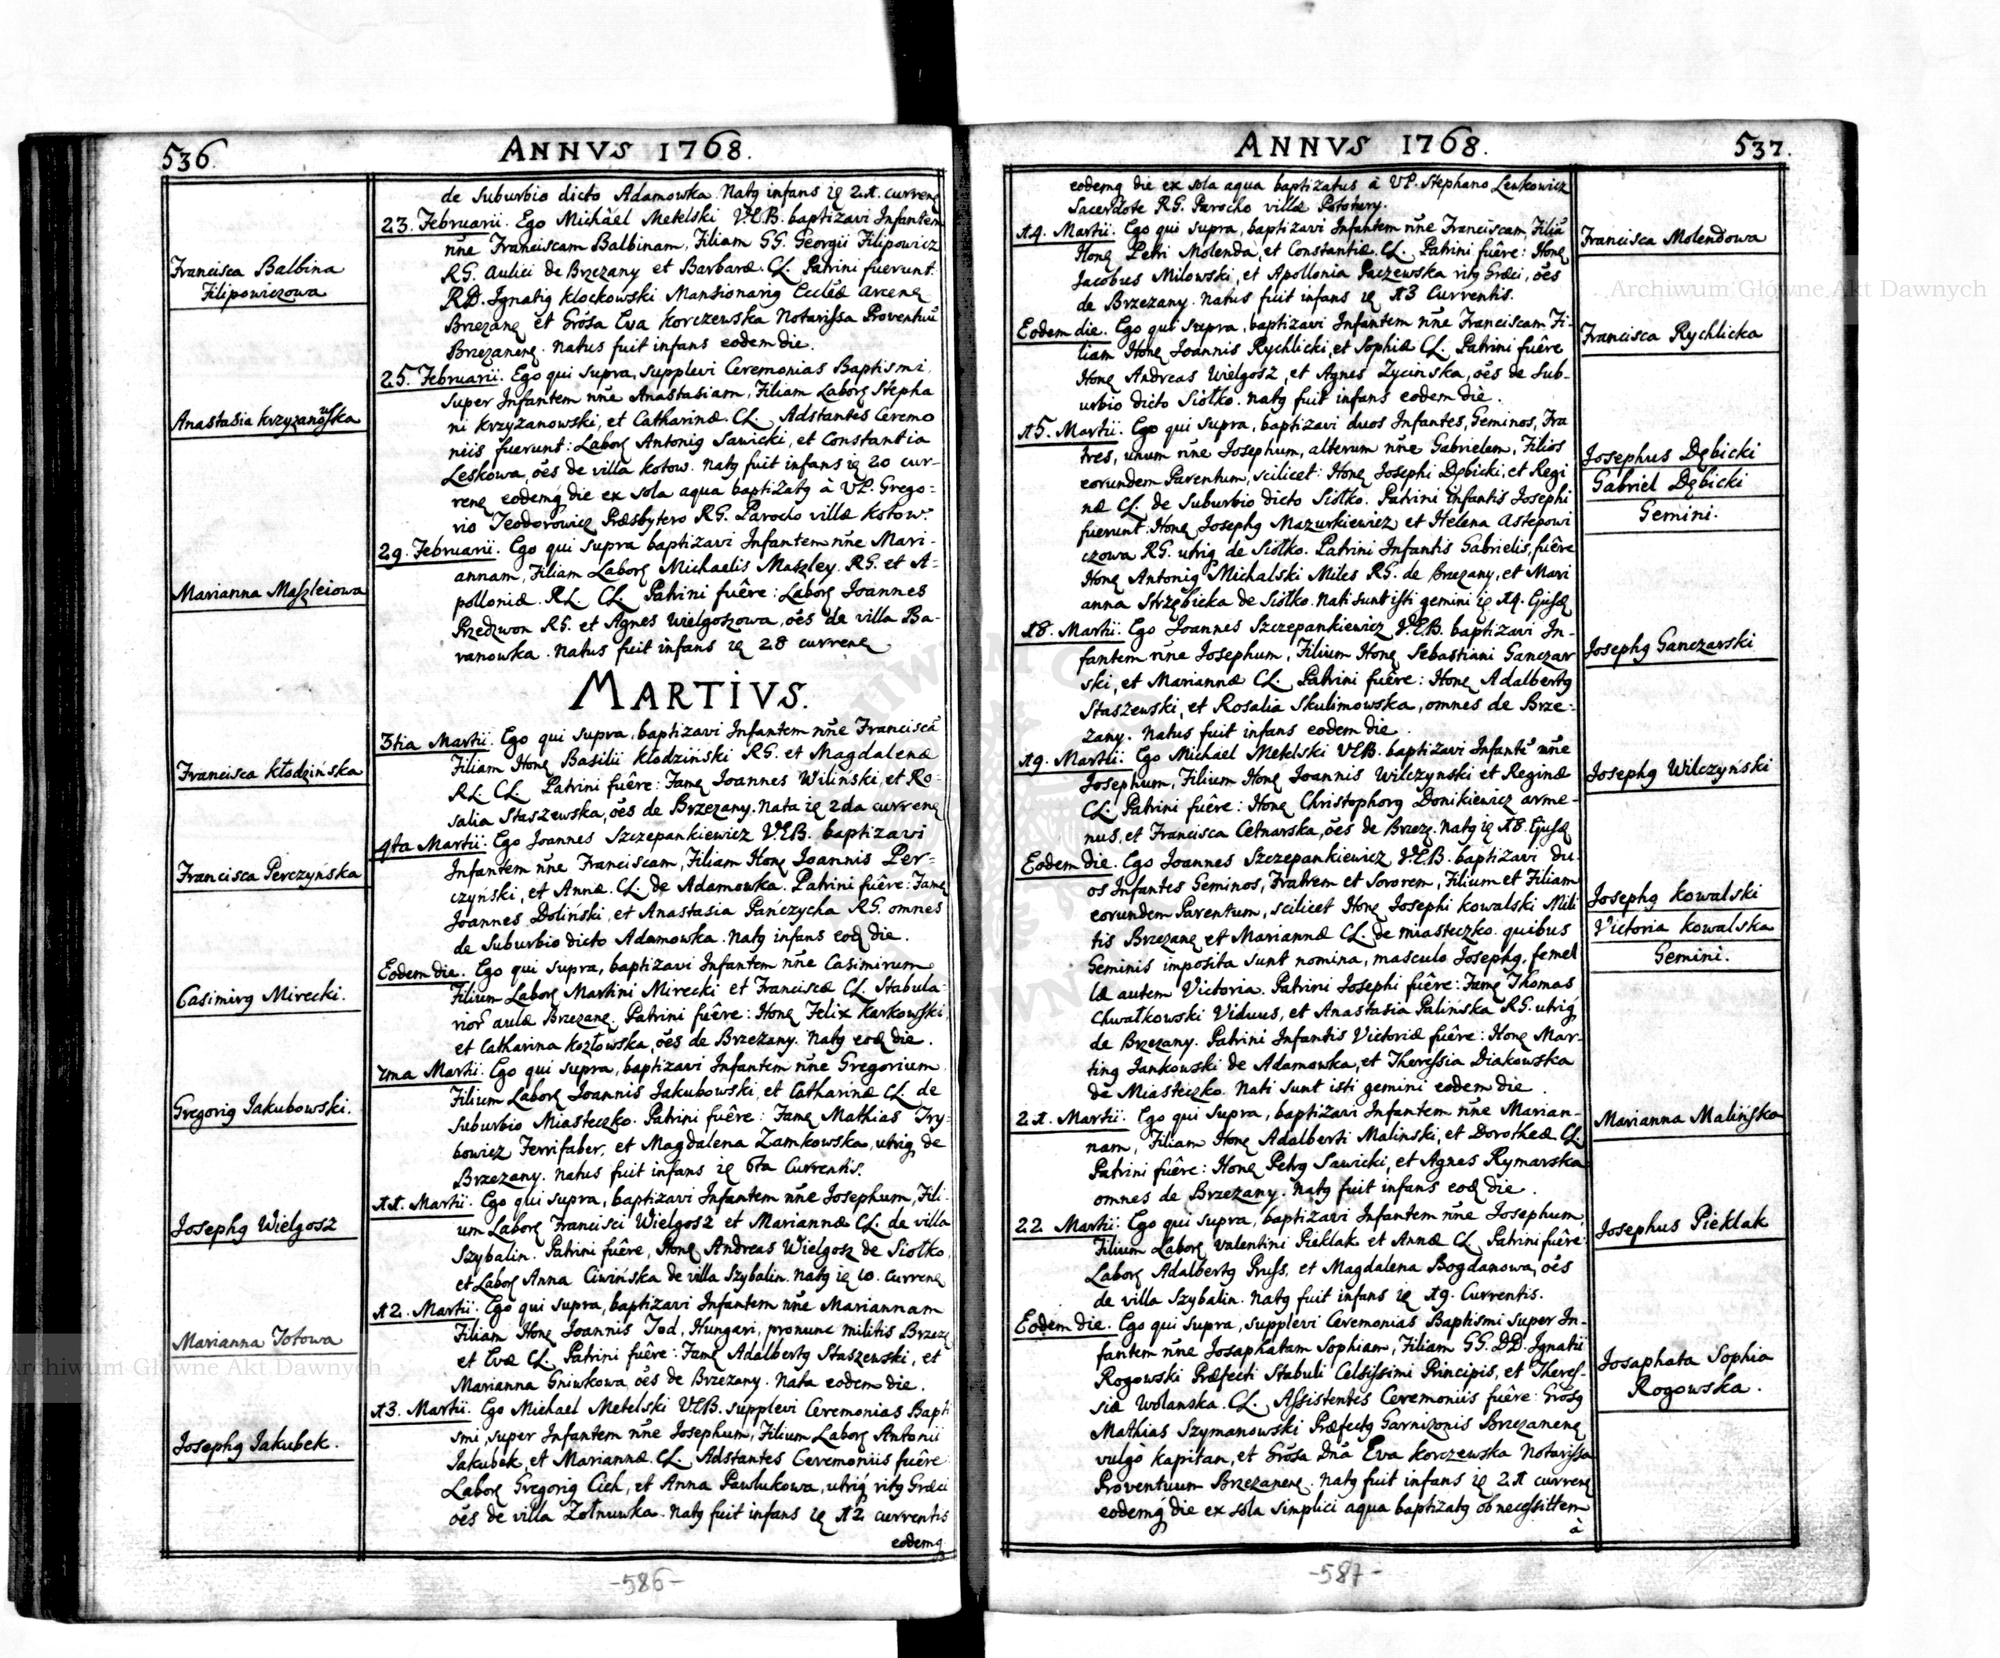 536.
ANNVS 1768.
de Suburbio dicto Adamowska. Natꝯ infans iꝗ 21. currenꝗ
23. Februarii. Ego Michäel Metelski VEB. baptizavi Infantem
nn̄e Franciscam Balbinam, Filiam GG. Georgii Filipowicz
RG. Aulici de Brzezany et Barbaræ. CL. Patrini fuerunt:
RD. Ignatiꝯ Klockowski Mansionariꝯ Eccl̄æ Arcenꝗ
Brzezanꝗ et Grōsa Eva Korczewska Notarissa Proventuū
Brzezanenꝗ. Natus fuit infans eodem die.
Francisca Balbina
Filipowiczowa
25. Februarii. Ego qui supra, supplevi Ceremonias Baptismi,
super Infantem nn̄e Anastasiam, Filiam Laborꝗ Stepha
ni Krzyżanowski, et Catharinæ. CL. Adstantes Ceremo
niis fuerunt: Laborꝗ Antoniꝯ Sawicki, et Constantia
Leskowa, ōes de villa Kotow. Natꝯ fuit infans iꝗ 20 cur-
renꝗ eodemꝗ die ex sola aqua baptizatꝯ à VP. Grego=
rio Teodorowicz Præsbytero RG. Parocho villæ Kotow.
Anastasia Krzyzanowska
29. Februarii. Ego qui supra baptizavi Infantem nn̄e Mari-
annam, Filiam Laborꝗ Michaelis Maszley. RG. et A-
polloniæ. RL. CL. Patrini fuêre: Laborꝗ Joannes
Przedzwon RG. et Agnes Wielgoszowa, ōes de villa Ba-
ranowka. Natus fuit infans iꝗ 28 currenꝗ
Marianna Maszleiowa
MARTIVS.
3tia Martii. Ego qui supra, baptizavi Infantem nn̄e Franciscā
Filiam Honꝗ Basilii Kłodziński RG. et Magdalenæ
RL. CL. Patrini fuêre: Famꝗ Joannes Wiliński, et Ro-
salia Staszewska, ōes de Brzezany. Nata iꝗ 2da currenꝗ
Francisca Kłodzińska
4ta Martii. Ego Joannes Szczepankiewicz VEB. baptizavi
Infantem nn̄e Franciscam, Filiam Honꝗ Joannis Per-
czyński, et Annæ. CL. de Adamowka. Patrini fuêre: Famꝗ
Joannes Doliński, et Anastasia Pańczycha RG. omnes
de Suburbio dicto Adamowka. Natꝯ infans eoꝗ die.
Francisca Perczyńska
Eodem die. Ego qui supra, baptizavi Infantem nn̄e Casimirum
Filium Laborꝗ Martini Mirecki et Franciscæ CL. Stabula-
rior aulæ Brzezanꝗ. Patrini fuêre: Honꝗ Felix Karkowski,
et Catharina Kozłowska, ōes de Brzezany. Natꝯ eoꝗ die.
Casimirꝯ Mirecki.
7ma Martii. Ego qui supra, baptizavi Infantem nn̄e Gregorium,
Filium Laborꝗ Joannis Jakubowski, et Catharinæ CL. de
Suburbio Miasteczko. Patrini fuêre: Famꝗ Mathias Try-
bowicz Ferrifaber, et Magdalena Zamkowska, utriꝗ de
Brzezany. Natus fuit infans iꝗ 6ta Currentis.
Gregoriꝯ Jakubowski.
11. Martii. Ego qui supra, baptizavi Infantem nn̄e Josephum, Fili-
um Laborꝗ Francisci Wielgosz et Mariannæ CL. de villa
Szybalin. Patrini fuêre, Honꝗ Andreas Wielgosz de Siołko,
et Laborꝗ Anna Ciwińska de villa Szybalin. Natꝯ iꝗ 10. currenꝗ
Josephꝯ Wielgosz
12. Martii. Ego qui supra, baptizavi Infantem nn̄e Mariannam
Filiam Honꝗ Joannis Tod, Hungari, pronunc militis Brzezꝗ
et Evæ CL. Patrini fuêre: Famꝗ Adalbertꝯ Staszewski, et
Marianna Gniwkowa, ōes de Brzezany. Nata eodem die.
Marianna Totowa
13. Martii. Ego Michael Metelski VEB. supplevi Ceremonias Bapti
smi, super Infantem nn̄e Josephum, Filium Laborꝗ Antonii
Jakubek, et Mariannæ. CL. Adstantes Ceremoniis fuêre
Laborꝗ Gregoriꝯ Cich, et Anna Pawlukowa, utriꝗ ritꝯ Græci
ōes de villa Zołnuwka. Natꝯ fuit infans iꝗ 12 currentis
eodemꝗ
Josephꝯ Jakubek.
-586-
ANNVS 1768.
537.
eodemꝗ die ex sola aqua baptizatus à VP. Stephano Leskowicz
Sacerdote RG. Parocho villæ Potoczry.
14. Martii. Ego qui supra, baptizavi Infantem nn̄e Franciscam, Filiā
Honꝗ Petri Molenda, et Constantiæ. CL. Patrini fuêre: Honꝗ
Jacobus Milowski, et Apollonia Paczewska ritꝯ Græci, ōes
de Brzezany. Natus fuit infans iꝗ 13 Currentis.
Francisca Molendowa
Eodem die. Ego qui supra, baptizavi Infantem nn̄e Franciscam Fi-
liam Honꝗ Joannis Rychlicki, et Sophiæ CL. Patrini fuêre
Honꝗ Andreas Wielgosz, et Agnes Zycińska, ōes de Sub-
urbio dicto Siołko. Natꝯ fuit infans eodem die.
Francisca Rychlicka
15. Martii. Ego qui supra, baptizavi duos Infantes, Geminos, Fra
tres, unum nn̄e Josephum, alterum nn̄e Gabrielem, Filios
eorundem Parentum, scilicet: Honꝗ Josephi Dębicki, et Regi
næ CL. de Suburbio dicto Siołko. Patrini infantis Josephi
fuerunt: Honꝗ Josephꝯ Mazurkiewicz et Helena Astepowi
czowa RG. utriꝗ de Siołko. Patrini Infantis Gabrielis, fuêre
Honꝗ Antoniꝯ Michalski Miles RG. de Brzezany, et Mari
anna Strzębicka de Siołko. Nati sunt isti gemini iꝗ 14. Ejusꝗ
Josephus Dębicki
Gabriel Dębicki
Gemini.
18. Martii. Ego Joannes Szczepankiewicz VEB. baptizavi In-
fantem nn̄e Josephum, Filium Honꝗ Sebastiani Ganczar
ski, et Mariannæ CL. Patrini fuêre: Honꝗ Adalbertꝯ
Staszewski, et Rosalia Skulimowska, omnes de Brze-
zany. Natus fuit infans eodem die.
Josephꝯ Ganczarski
19. Martii: Ego Michael Metelski VEB. baptizavi Infantē nn̄e
Josephum, Filium Honꝗ Joannis Wilczynski et Reginæ
CL. Patrini fuêre: Honꝗ Christophorꝯ Donikiewicz arme-
nus, et Francisca Cetnarska, ōes de Brzez. Natꝯ iꝗ 18. Ejusꝗ
Josephꝯ Wilczyński
Eodem die. Ego Joannes Szczepankiewicz VEB. baptizavi du
os Infantes Geminos, Fratrem et Sororem, Filium et Filiam
eorundem Parentum, scilicet Honꝗ Josephi Kowalski Mili
tis Brzezanꝗ et Mariannæ CL. de miasteczko. quibus
Geminis imposita sunt nomina, masculo Josephꝯ, femel
læ autem Victoria. Patrini Josephi fuêre: Famꝗ Thomas
Chwałkowski Viduus, et Anastasia Palińska RG. utriꝗ
de Brzezany. Patrini Infantis Victoriæ fuêre: Honꝗ Mar-
tinꝯ Jankowski de Adamowka, et Theressia Diakowska
de Miasteczko. Nati sunt isti gemini eodem die.
Josephꝯ Kowalski
Victoria Kowalska
Gemini.
21. Martii. Ego qui supra, baptizavi Infantem nn̄e Marian-
nam, Filiam Honꝗ Adalberti Malinski, et Dorotheæ CL.
Patrini fuêre: Honꝗ Petrꝯ Sawicki, et Agnes Rymarska
omnes de Brzezany. Natꝯ fuit infans eoꝗ die.
Marianna Malińska
22 Martii: Ego qui supra, baptizavi Infantem nn̄e Josephum,
Filium Laborꝗ Valentini Pieklak et Annæ CL. Patrini fuêre:
Laborꝗ Adalbertꝯ Pruss, et Magdalena Bogdanowa, ōes
de villa Szybalin. Natꝯ fuit infans iꝗ 19. Currentis.
Josephus Pieklak
Eodem die. Ego qui supra, supplevi Ceremonias Baptismi super In-
fantem nn̄e Josaphatam Sophiam, Filiam GG. DD. Ignatii
Rogowski Præfecti Stabuli Celsissimi Principis, et Theres-
siæ Wolanska. CL. Assistentes Ceremoniis fuêre: Grōsꝯ
Mathias Szymanowski Præfectꝯ Garnizonis Brzezanenꝗ
vulgò Kapitan, et Grōsa Dnā Eva Korczewska Notarissa
Proventuum Brzezanenꝗ. Natꝯ fuit infans iꝗ 21 currenꝗ
eodemꝗ die ex sola simplici aqua baptizatꝯ ob necessittem
à
Josaphata Sophia
Rogowska.
-587-
Archiwum Główne Akt Dawnych
Archiwum Główne Akt Dawnych